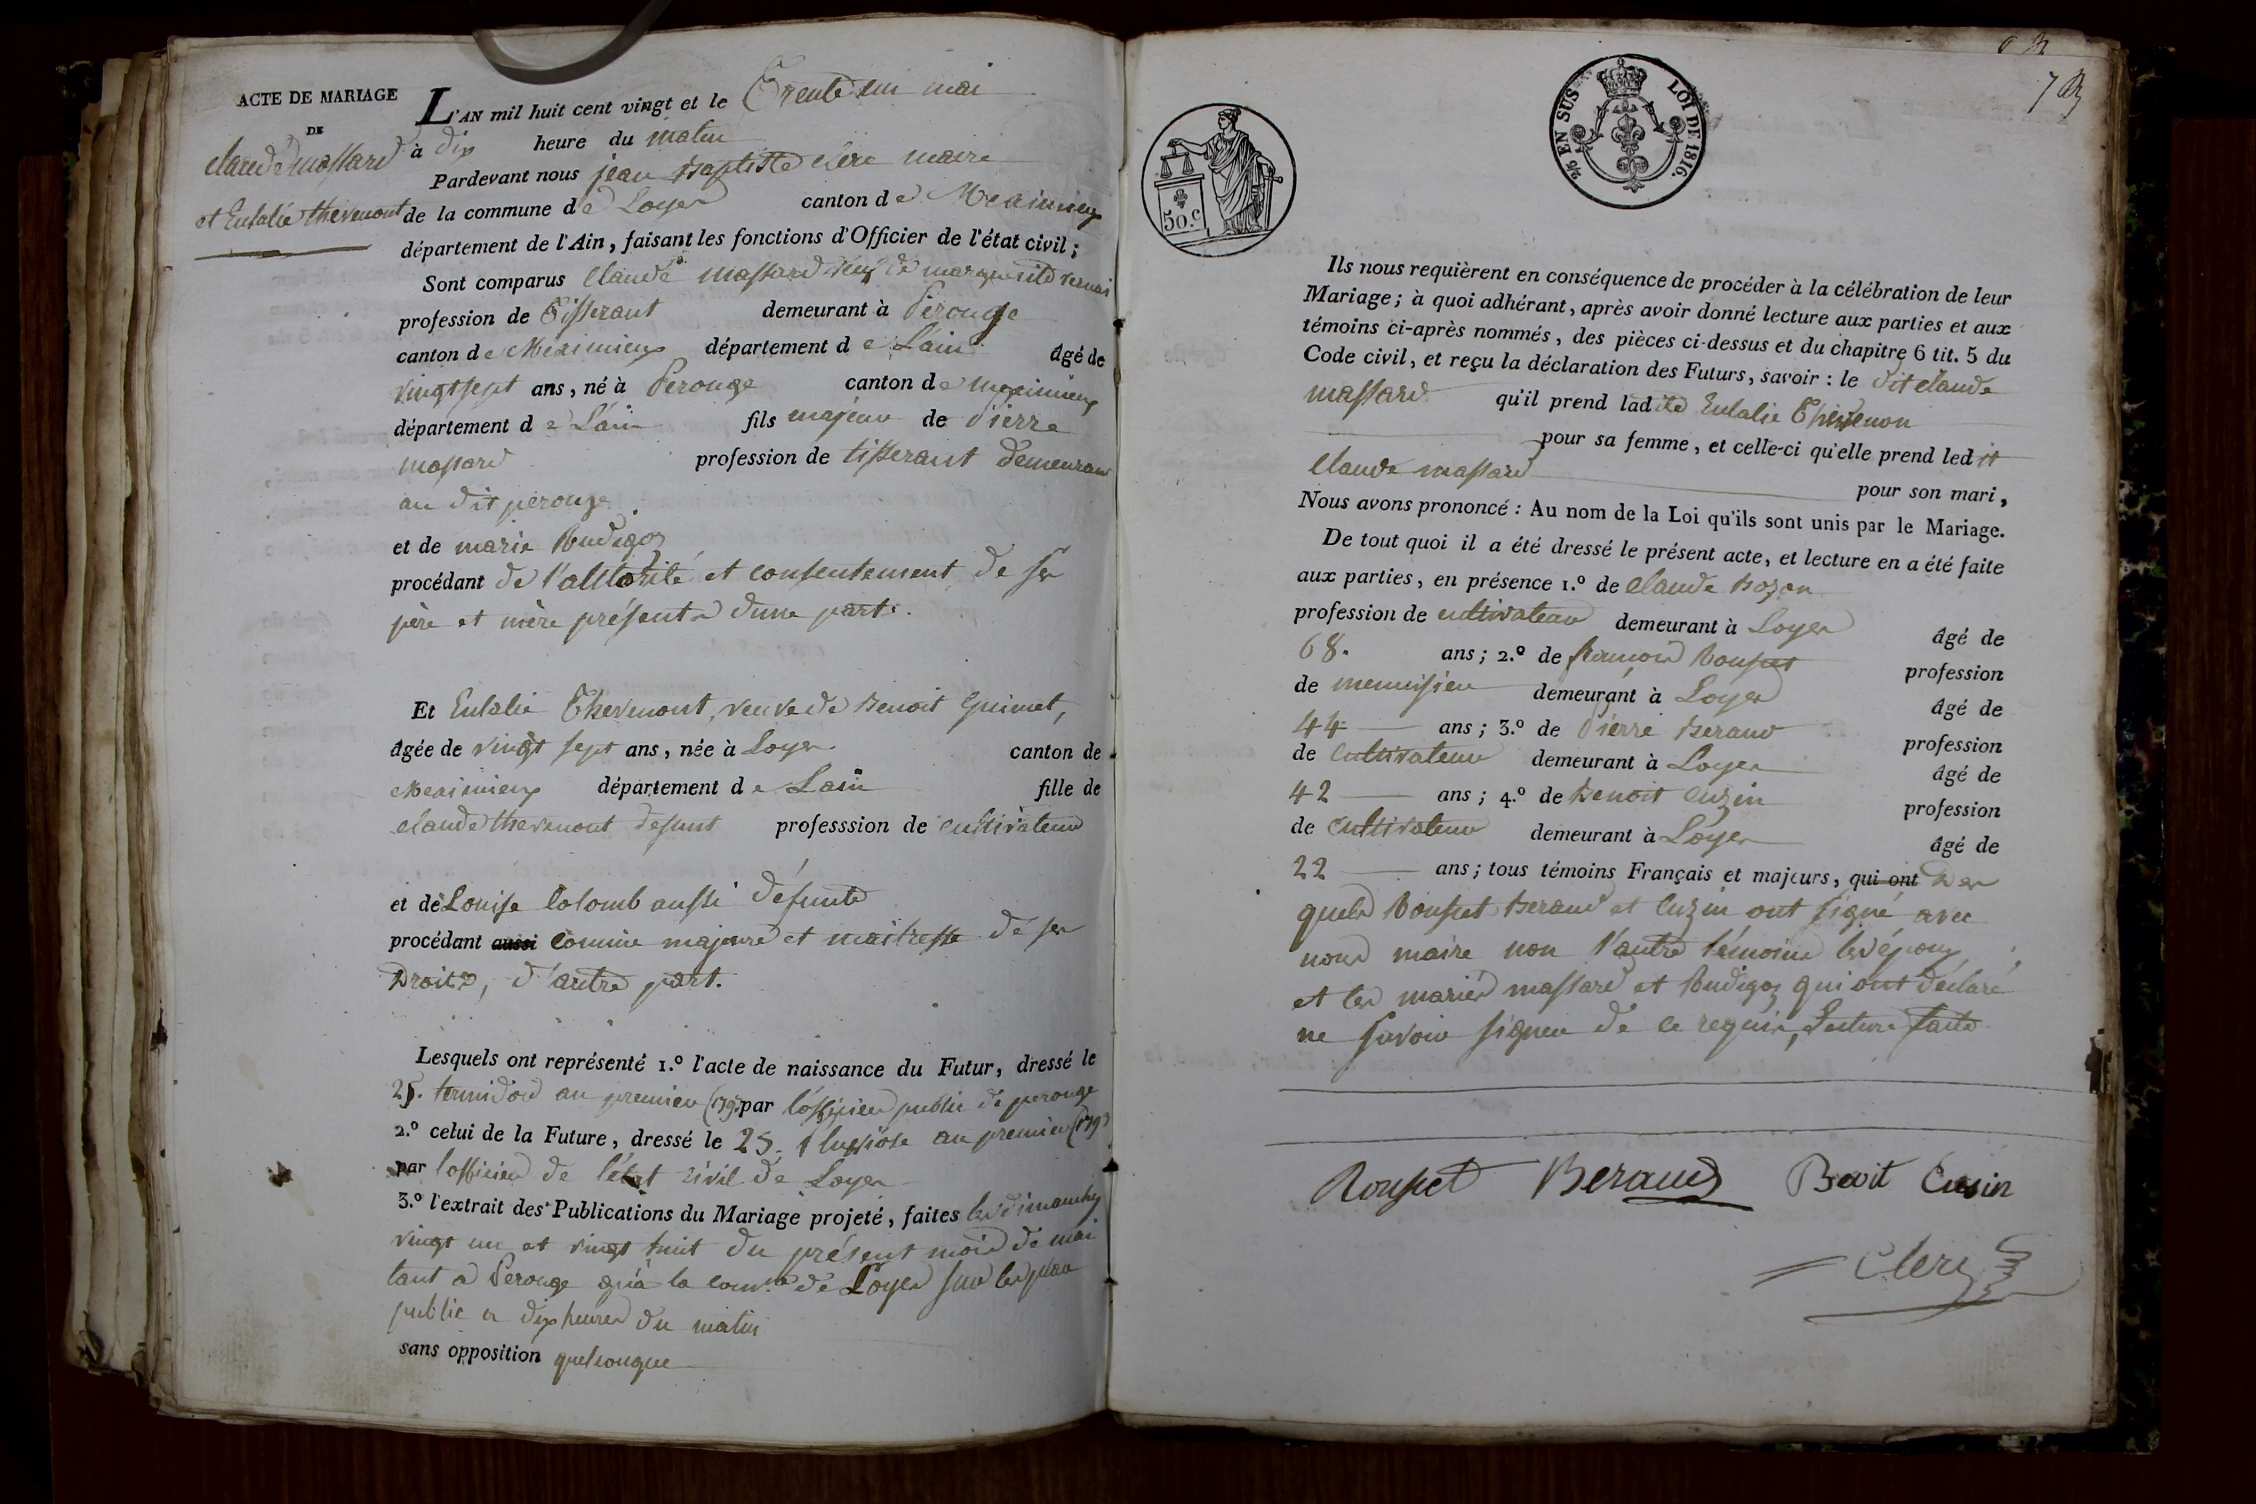 ACTE DE MARIAGE
DE
claude massard
et Eulalie thevenont
L'AN mil huit cent vingt et le Trente un mai
à dix heure du matin
Pardevant nous jean Baptiste clerc maire
de la commune de Loyes canton de Meximieux
département de l'Ain, faisant les fonctions d'Officier de l'état civil;
Sont comparus claude massard veuf de marguerite
profession de Tisserant demeurant à Pérouge
canton de Meximieux département de L'ain âgé de
vingt sept ans, né à Perouge canton de Meximieux
département de L'ain fils majeur de Pierre
massard profession de tisserant demeurant
au dit perouge
et de marie Rudigoz
procédant de l'autorité et consentement de ses
père et mère présents d'une part.
Et Eulalie Thevenont, veuve de Benoit Guimet,
âgée de vingt sept ans, née à Loyes canton de
Meximieux département de Lain fille de
claude thevenont defunt professsion de cultivateur
et de Louise Colomb aussi défunte
procédant aussi comme majeure et maitresse de ses
Droits, d'autre part.
Lesquels ont représenté 1.º l'acte de naissance du Futur, dressé le
25. termidor an premier par l'officier public de perouge
2.º celui de la Future, dressé le 25. pluviose an premier (1793
par l'officier de l'état civil de Loyes
3.º l'extrait des Publications du Mariage projeté, faites les dimanches
vingt un et vingt huit du présent mois de mai
tant a Perouge qu'à la comne de Loyes sur les
public a dix heures du matin
sans opposition quelconque
50.c
EN SUS LOI DE 1816.
7
Ils nous requièrent en conséquence de procéder à la célébration de leur
Mariage; à quoi adhérant, après avoir donné lecture aux parties et aux
témoins ci-après nommés, des pièces ci-dessus et du chapitre 6 tit. 5 du
Code civil, et reçu la déclaration des Futurs, savoir: le dit claude
massard qu'il prend ladite Eulalie Thevenon
pour sa femme, et celle-ci qu'elle prend ledit
claude massard pour son mari,
Nous avons prononcé: Au nom de la Loi qu'ils sont unis par le Mariage.
De tout quoi il a été dressé le présent acte, et lecture en a été faite
aux parties, en présence 1.º de claude Bozon
profession de cultivateur demeurant à Loyes âgé de
68. ans; 2.º de françois Rousset profession
de menuisier demeurant à Loyes âgé de
44 ans; 3.º de Pierre Beraud profession
de cultivateur demeurant à Loyes âgé de
42 ans; 4.º de Benoit Cuzin profession
de cultivateur demeurant à Loyes âgé de
22 ans; tous témoins Français et majeurs, qui ont Des
quels Rousset Beraud et Cuzin ont signé avec
nous maire non l'autre témoin les époux
et les mariés massard et Rudigoz qui ont déclaré
ne savoir signer de ce requis, Lecture faite
Rousset Beraud Benoit Cusin
Clerc